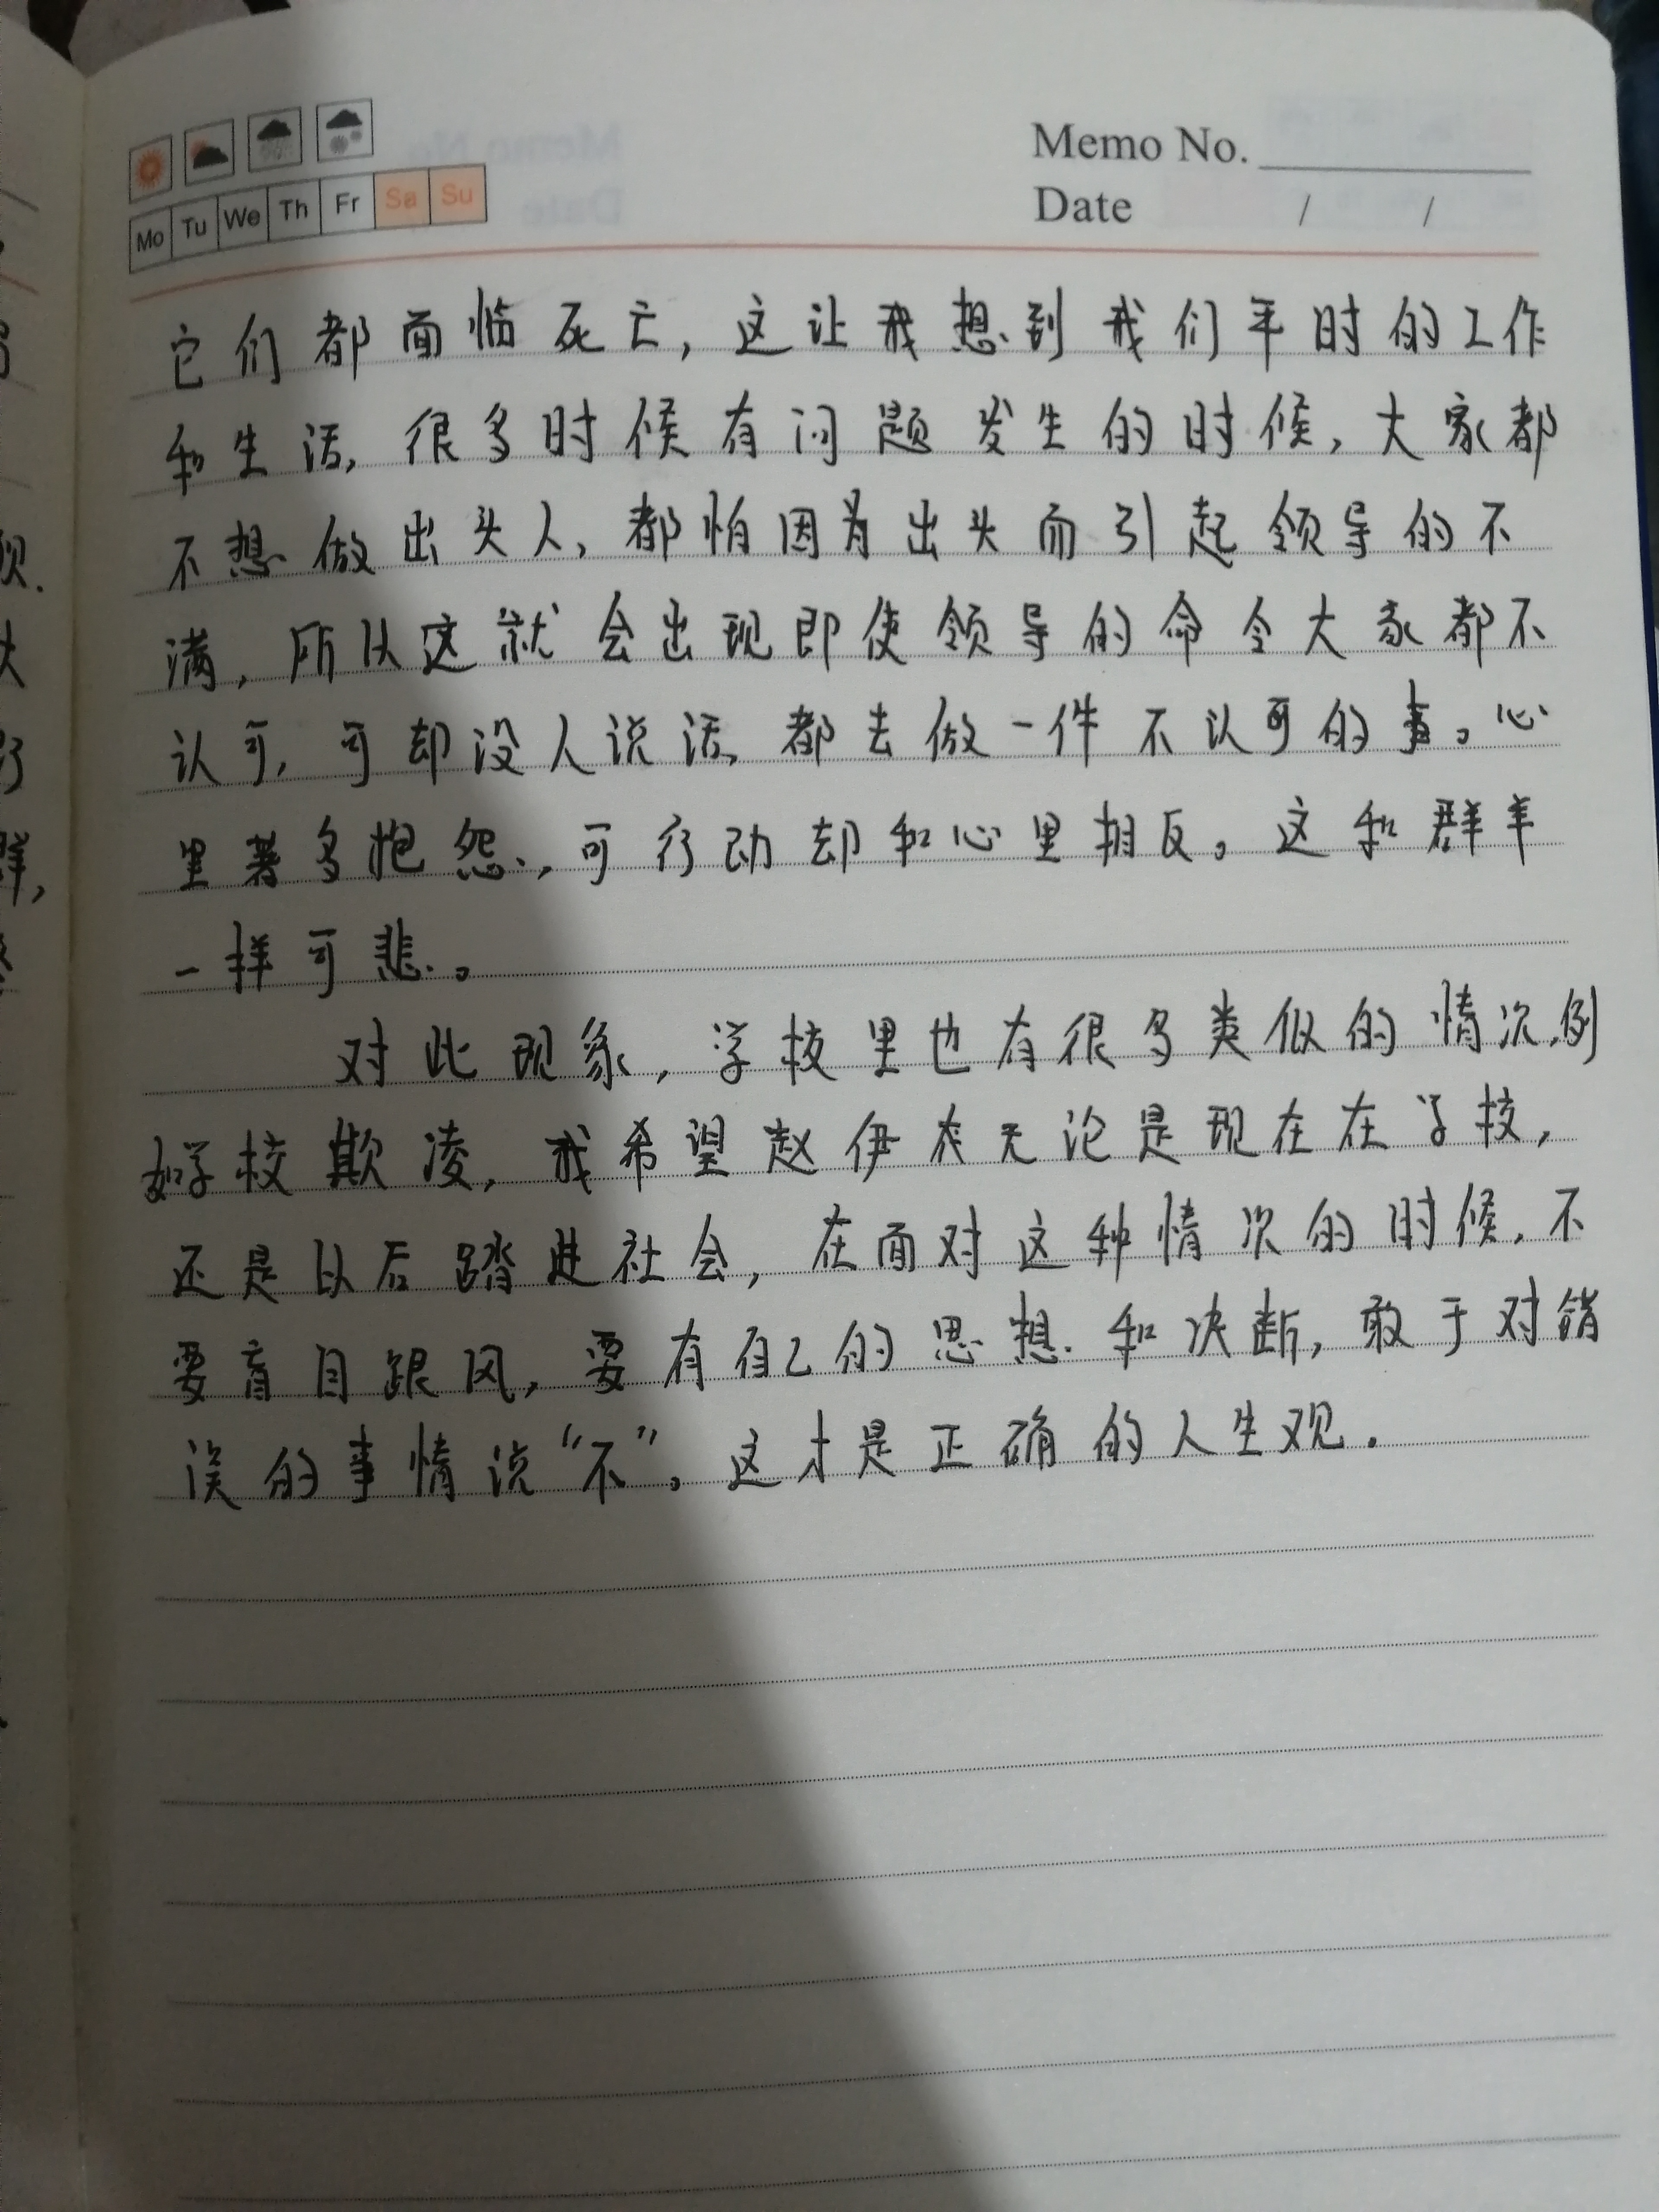 Memo No.
Date / /
Mo Tu We Th Fr Sa Su
它们都面临死亡，这让我想到我们平时的工作
和生活，很多时候有问题发生的时候，大家都
不想做出头人，都怕因为出头而引起领导的不
满，所以这就会出现即使领导的命令大家都不
认可，可却没人说话，都去做一件不认可的事。心
里甚多抱怨，可行动却和心里相反。这和群羊
一样可悲。
对此现象，学校里也有很多类似的情况，例
如学校欺凌，我希望赵伊 无论是现在在学校，
还是以后踏进社会，在面对这种情况的时候，不
要盲目跟风，要有自己的思想和决断，敢于对错
误的事情说“不”。这才是正确的人生观．